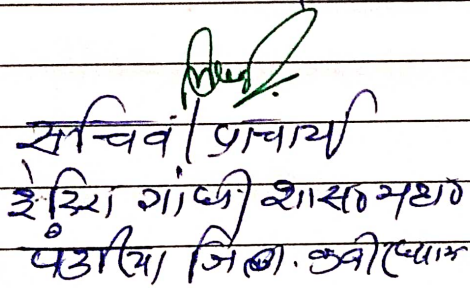 सचिव / प्राचार्य
इंदिरा गांधी शास० महा०
पंडरिया जिला. कबीरधाम